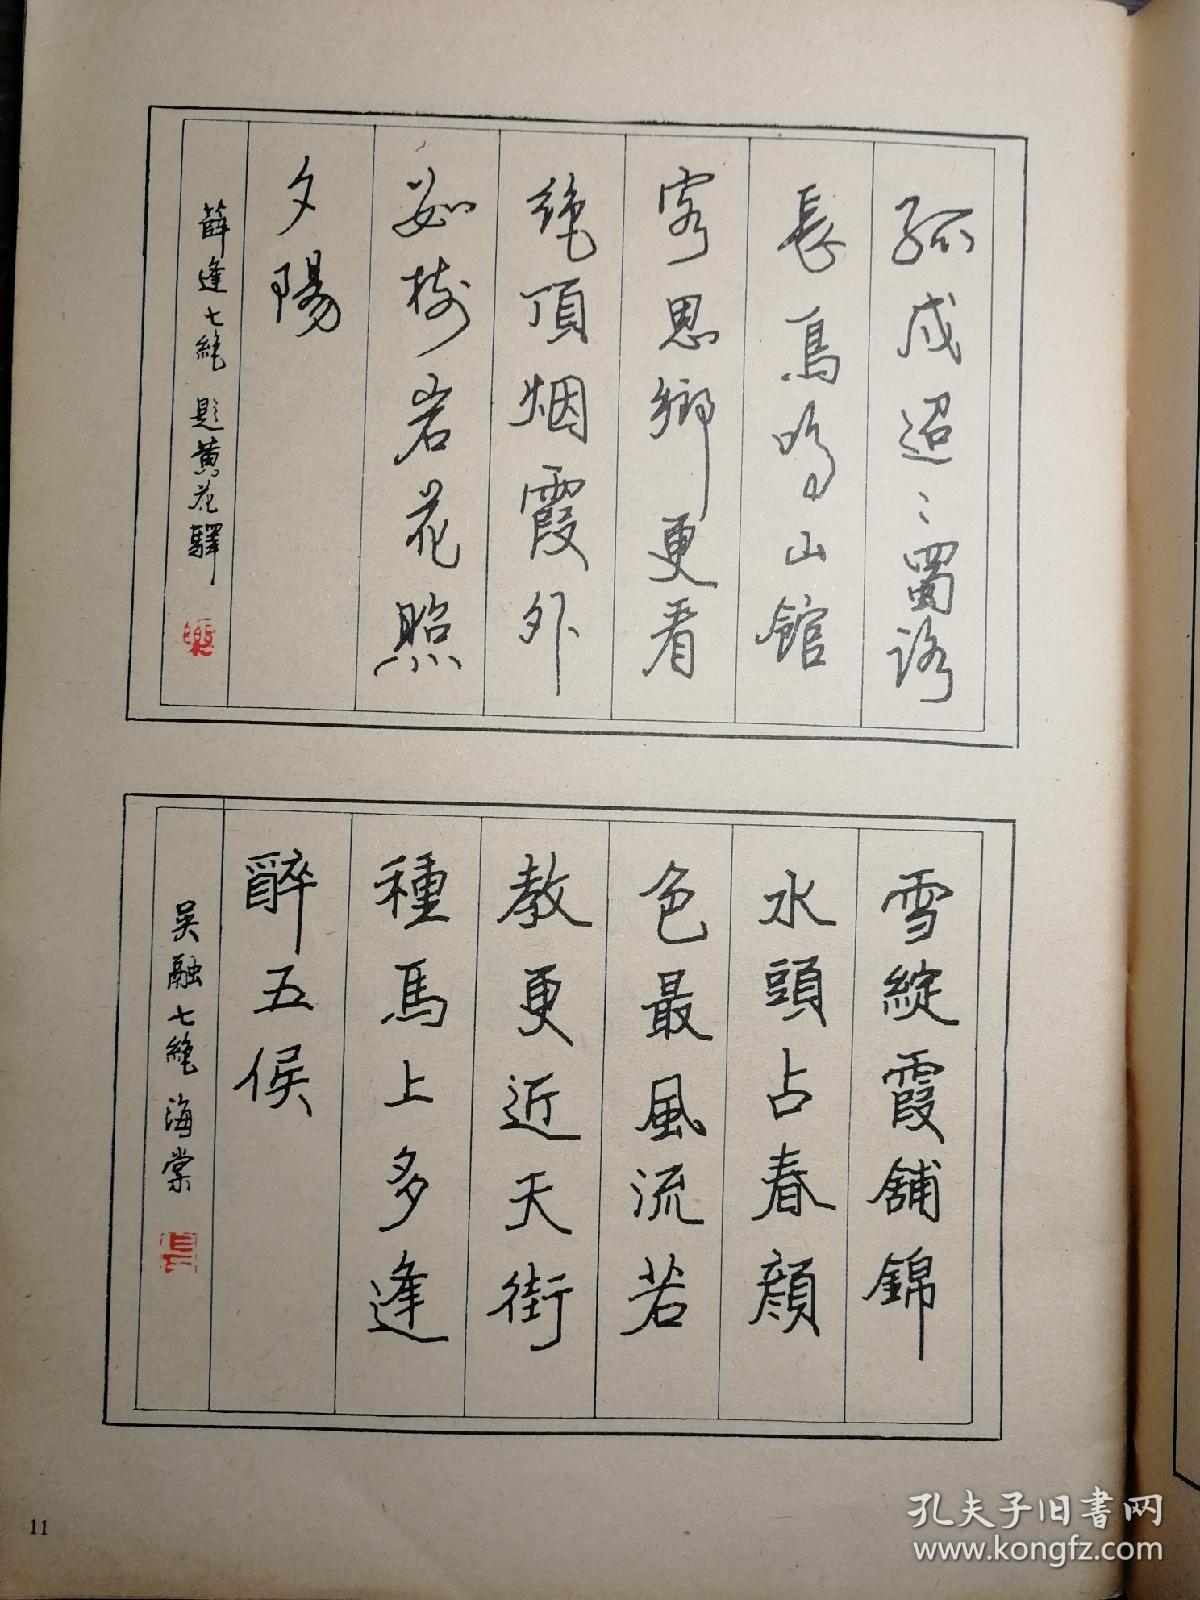 孤戍迢〻蜀路
長鳥鳴山館
客思鄉更看
絶頂烟霞外
數樹岩花照
夕陽
薛逢七絶 題黄花驛
雪綻霞舖錦
水頭占春顔
色最風流若
教更近天街
種馬上多逢
醉五侯
吴融七絶 海棠
11
孔夫子旧书网
www.kongfz.com